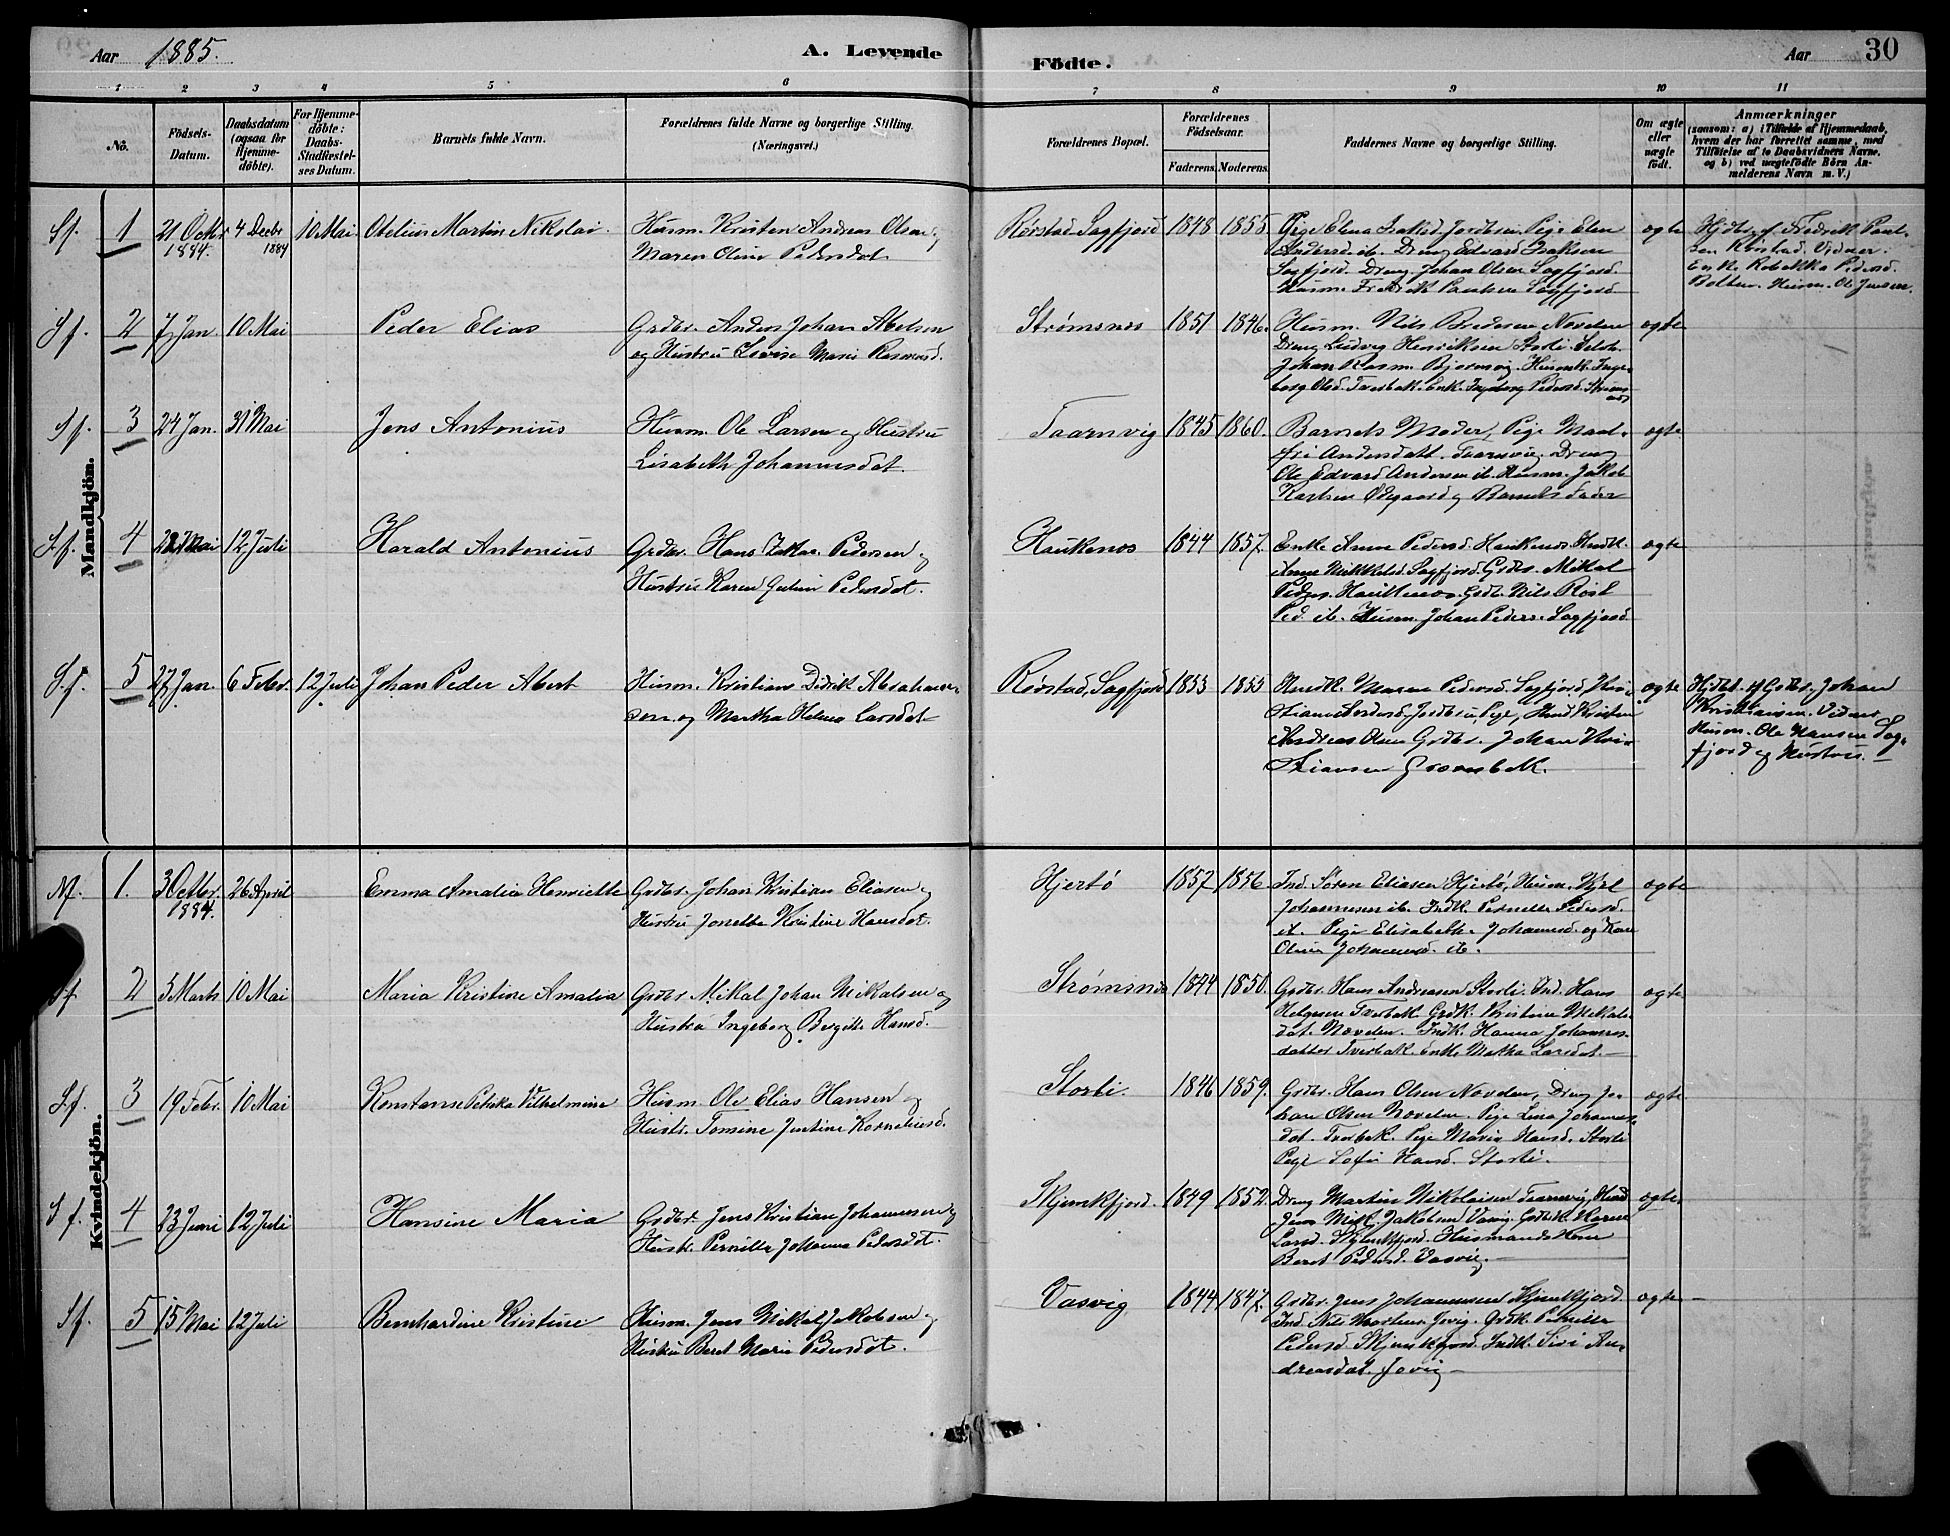 Aar 1885. A. Levende
Födte. Aar 30
1 2 3 4 5 6 7 8 9 10 11
No.
Födsels-
Datum.
Daabsdatum
(ogsaa for
Hjemme-
döbte).
For Hjemme-
döbte:
Daabs-
Stadfæstel-
ses Datum.
Barnets fulde Navn.
Forældrenes fulde Navne og borgerlige Stilling.
(Næringsvei.)
Forældrenes Bopæl.
Forældrenes
Födselsaar.
Faderens. Moderens.
Faddernes Navne og borgerlige Stilling.
Om ægte
eller
uægte
födt.
Anmærkninger
(saasom: a) i Tilfælde af Hjemmedaab,
hvem der har forrettet samme, med
Tilföielse af to Daabsvidners Navne,
og b) ved uægtefödte Börn An-
melderens Navn m. V.)
Mandkjön.
Sf. 1 21 Octbr 4 Decbr 10 Mai Otelius Martin Nikolai Husm. Kristen Andreas Olsen og
1884. 1884
Maren Oline Pedersdat.
Rørstad, Sagfjord 1848 1855 Pige Elena Jordbru. Pige Elen
Andersd. ib. Dreng Edvard Isaksen
Sagfjord. Dreng Johan Olsen Sagfjord.
Husm. Fredrik Paulsen Sagfjord
ægte
Hjdbt. af Fredrik Paul-
sen Rørstad. Vidner:
Enke Rebekka Pedersd.
Husm. Ole Jensen.
Sf. 2 7 Jan. 10 Mai Peder Elias Grdbr. Anders Johan Abelsen
og Hustru Lovise Marie Rasmusd.
Strømsnes 1851 1846. Husm. Nils Bredesen
Dreng Ludvig Henriksen Storli.
Johan Rasm. Bjørnsvig. Husmk. Inge-
borg Olsd. Tverbak. Enk. Ingeborg Pedersd. Strøms-
nes
ægte
Sf. 3 24 Jan. 31 Mai Jens Antonius Husm. Ole Larsen og Hustru
Lisabeth Johannesdat.
Taarnvig 1845 1860. Barnets Moder, Pige Maal-
fri Andersdatt. Taarnvig. Dreng
Ole Edvard Andersen ib. Husm. Jakob
Karlsen Ødegaard og Barnets Fader
ægte
Sf. 4 Mai 12 Juli Harald Antonius Grdbr. Hans Zakar. Pedersen og
Hustru Karen Juline Pedersdat.
Haukenes 1844 1857. Enke Anne Pedersd. Haukenes. Husmk.
Anne Mikkelsd. Sagfjord. Grdbr. Mikal
Peders. Haukenes. Grdb. Nils Røst
Ped. ib. Husm. Johan Peders. Sagfjord
ægte
Sf. 5 27 Jan. 6 Febr. 12 Juli Johan Peder Abert Husm. Kristian Didrik Abraham-
sen og Martha Helena Larsdat
Rørstad, Sagfjord 1853 1855 Husmk. Maren Pedersd. Sagfjord, Kri-
stiane Jordbru, Pige, Husm. Kristen
Andreas Olsen Grdbr. Johan Kri-
stiansen Grønbek.
ægte
Hjdbt. af Grdbr. Johan
Kristiansen. Vidner
Husm. Ole Hansen Sag-
fjord og Hustru.
Kvindekjön.
M. 1. 3 Octbr. 26 April Emma Amalia Henriette Grdbr. Johan Kristian Eliasen og
1884.
Hustru Jonette Kristine Hansdat.
Hjertø 1857 1856. Ind. Søren Eliasen Hjertø, Husm.
Johannesen ib. Indk. Pernille Pedersd.
ib. Pige Elisabeth Johannesd. og
Oline Johannesd. ib.
ægte
Sf 2 5 Marts 10 Mai Maria Kristine Amalia Grdbr. Mikal Johan Mikalsen og
Hustru Ingeborg Bergitte Hansd.
Strømsnes 1844 1850. Grdbr. Hans Andreasen Storli. Ind. Hans
Helgesen Tverbak. Grdk. Kristine Mikals-
dat. Indk. Hanna Johannes-
datter Tverbak. Enke Martha Larsdat.
ægte
Sf. 3 19 Febr. 10 Mai Konstanse Petrika Vilhelmine Husm. Ole Elias Hansen og
Hustr. Tomine Justine Korneliusd.
Storli. 1846 1859. Grdbr. Hans Olsen Dreng Jo-
han Olsen Pige Lina Johannes-
dat. Tverbak. Pige Maria Hansd. Storli
Pige Sofie Hansd. Storli.
ægte
Sf. 4 23 Juni 12 Juli Hansine Maria Grdbr. Jens Kristian Johannesen og
Hustr. Pernille Johanna Pedersdat.
Skjemkfjord. 1849 1852. Dreng Martin Nikolaisen Taarnvig, Husm.
Jens Mik. Jakobsen Vasvig. Grdbrk. Karen
Larsd. Husmands Kone
Beret Pedersd. Vasvig.
ægte
Sf. 5 15 Mai 12 Juli Bernhardine Kristine Husm. Jens Mikal Jakobsen og
Hustru Beret Maria Pedersdat.
Vasvig 1844 1847. Grdbr. Jens Johannesen Skjemkfjord
Ind. Nils Martinus. Jovig. Grdk. Pernille
Pedersd. Skjemkfjord. Indk. Siri An-
dreasdat. Jovig
ægte